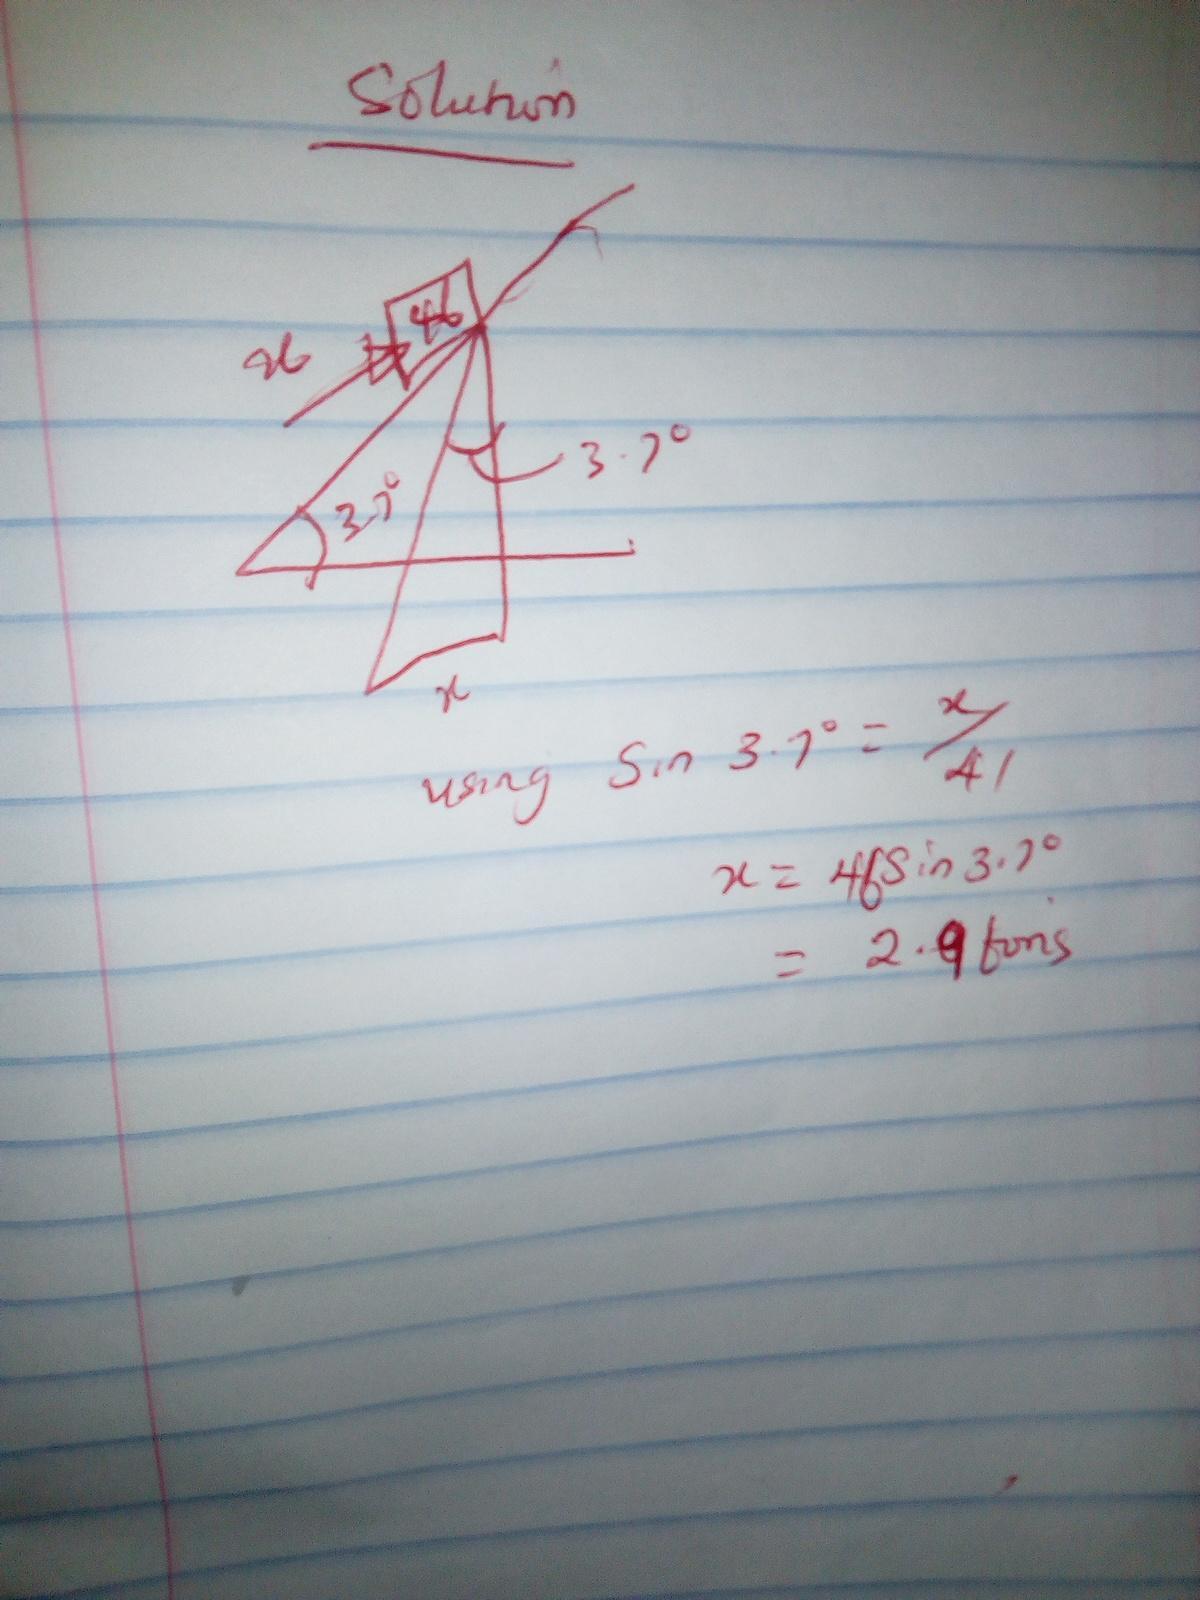 Solution
46
x
3.7°
3.7°
x
using Sin 3.7° = x/41
x = 46Sin 3.7°
= 2.9 tons